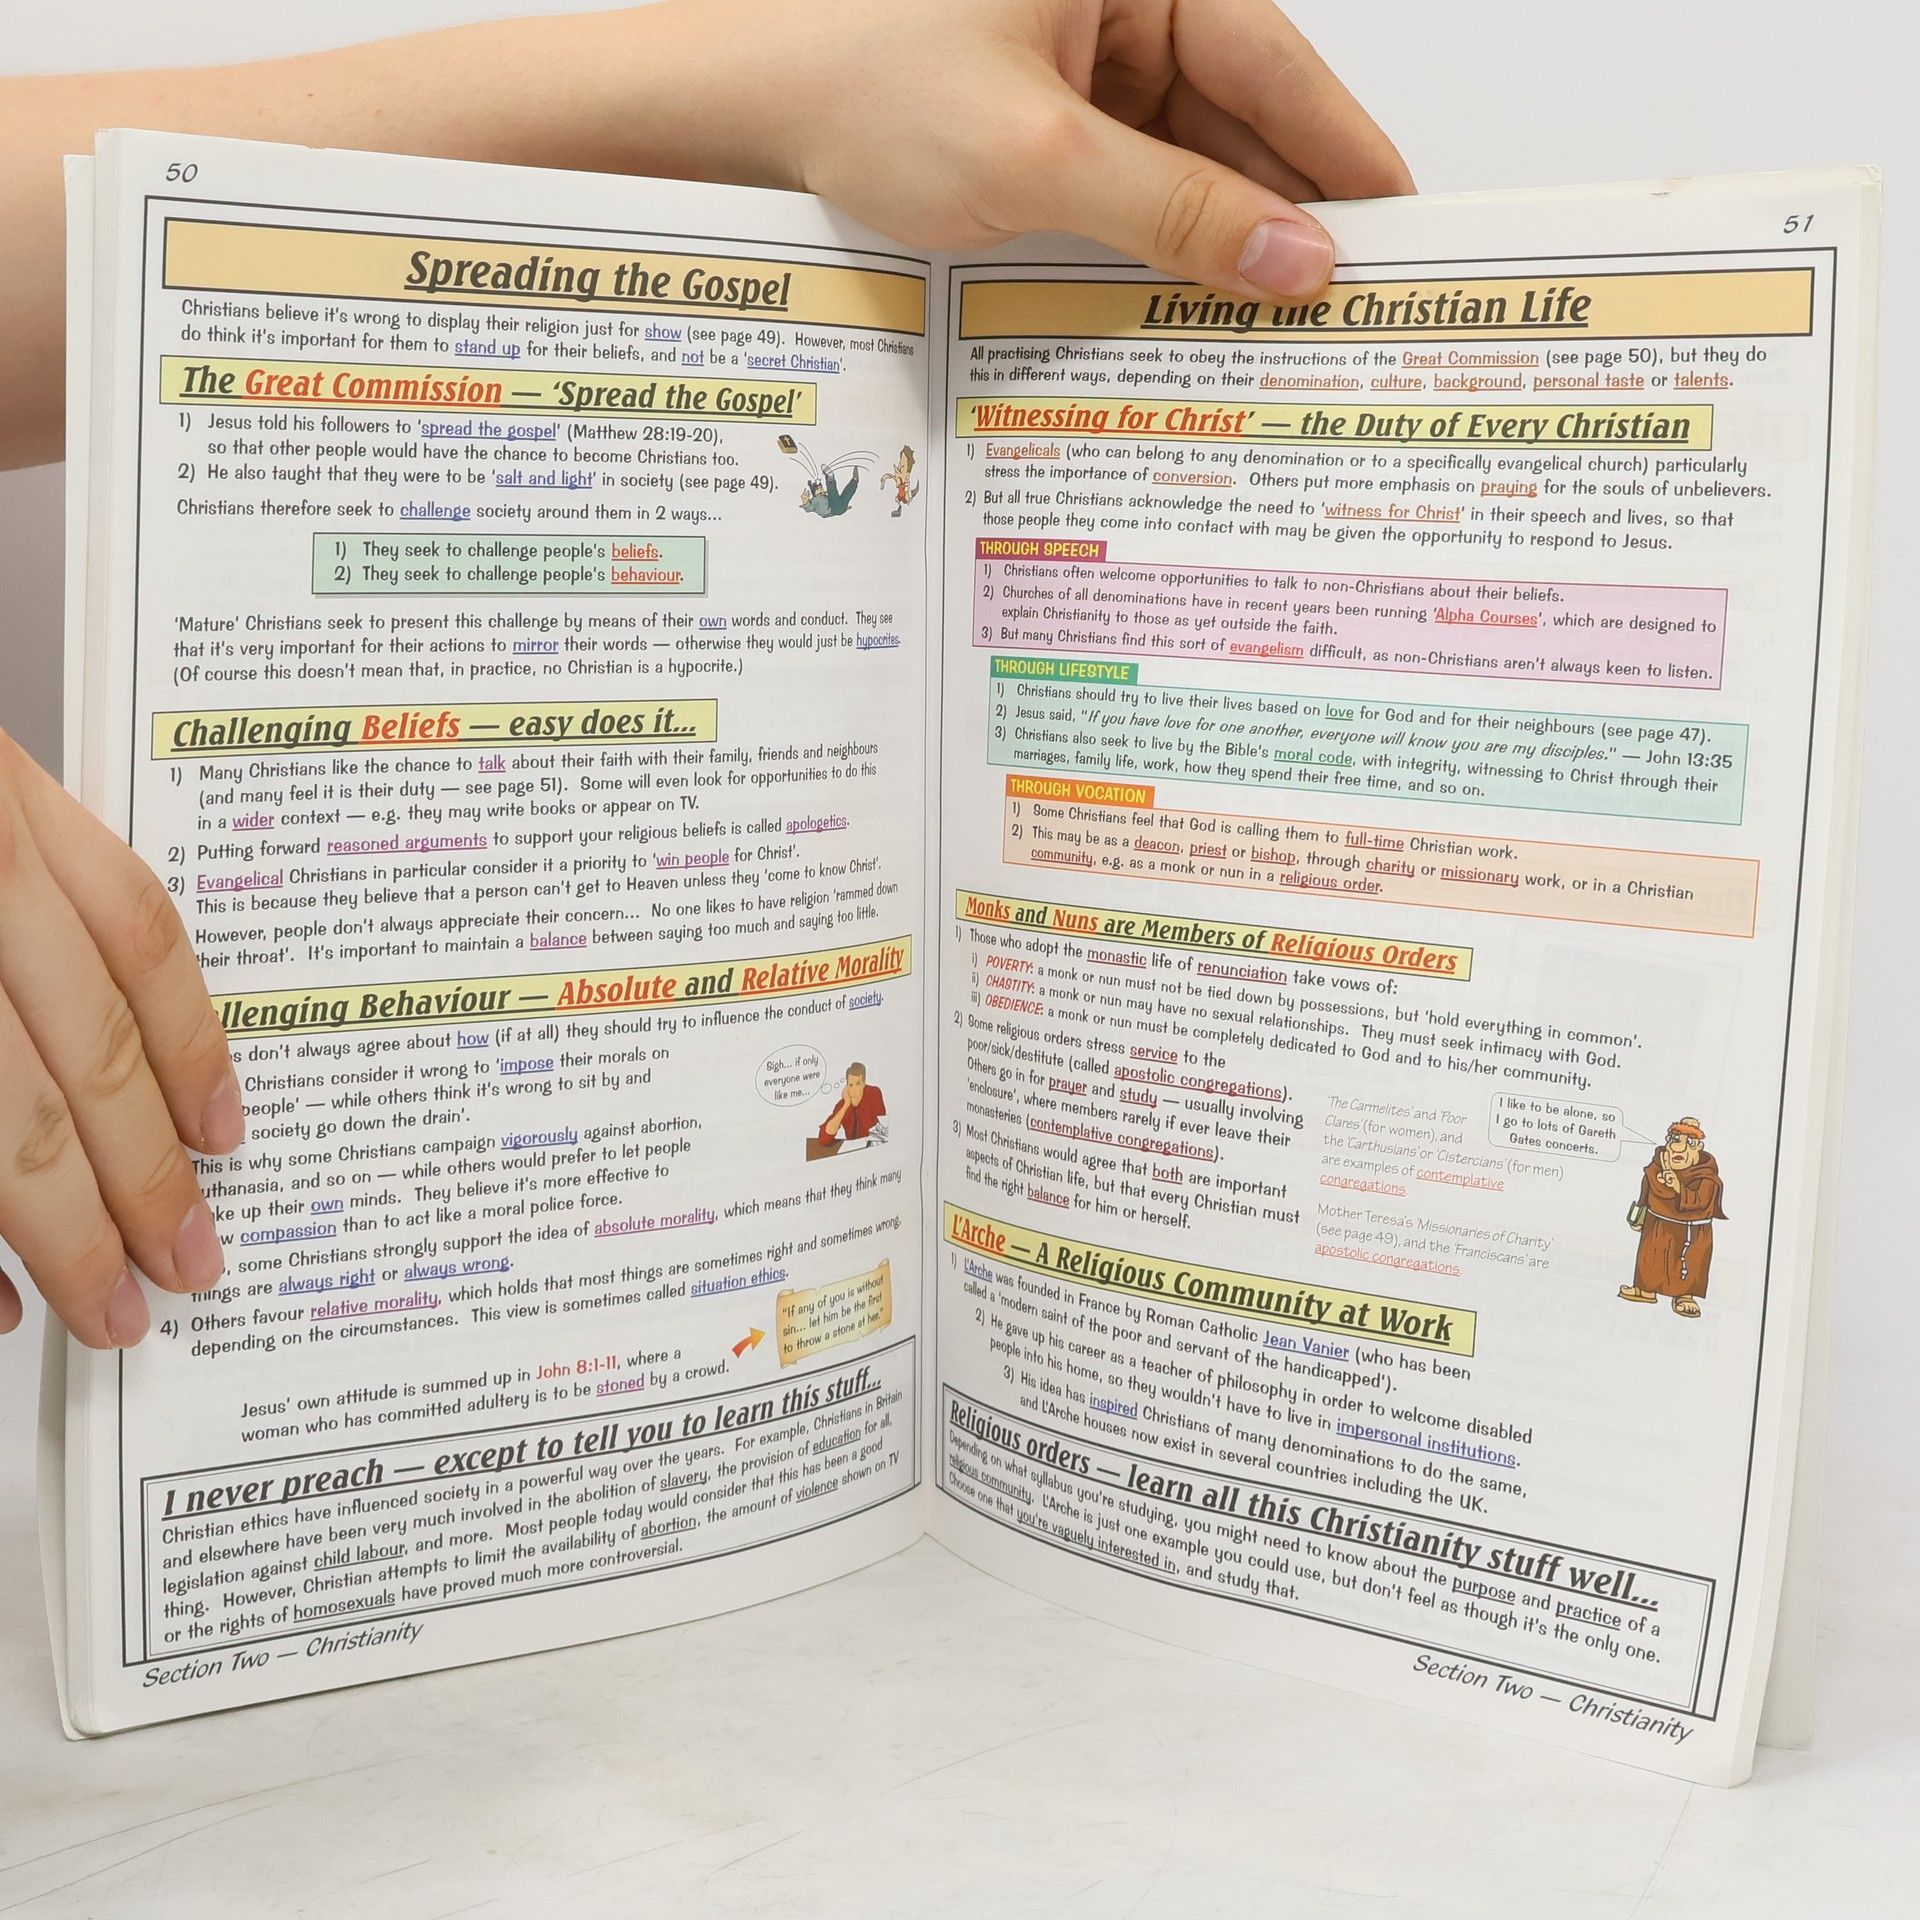 50
Spreading the Gospel
Christians believe it's wrong to display their religion just for show (see page 49). However, most Christians
do think it's important for them to stand up for their beliefs, and not be a 'secret Christian'.
The Great Commission — 'Spread the Gospel'
1) Jesus told his followers to 'spread the gospel' (Matthew 28:19-20),
so that other people would have the chance to become Christians too.
2) He also taught that they were to be 'salt and light' in society (see page 49).
Christians therefore seek to challenge society around them in 2 ways...
1) They seek to challenge people's beliefs.
2) They seek to challenge people's behaviour.
'Mature' Christians seek to present this challenge by means of their own words and conduct. They see
that it's very important for their actions to mirror their words — otherwise they would just be hypocrites.
(Of course this doesn't mean that, in practice, no Christian is a hypocrite.)
Challenging Beliefs — easy does it...
1) Many Christians like the chance to talk about their faith with their family, friends and neighbours
(and many feel it is their duty — see page 51). Some will even look for opportunities to do this
in a wider context — e.g. they may write books or appear on TV.
2) Putting forward reasoned arguments to support your religious beliefs is called apologetics.
3) Evangelical Christians in particular consider it a priority to 'win people for Christ'.
This is because they believe that a person can't get to Heaven unless they 'come to know Christ'.
However, people don't always appreciate their concern... No one likes to have religion 'rammed down
their throat'. It's important to maintain a balance between saying too much and saying too little.
llenging Behaviour — Absolute and Relative Morality
s don't always agree about how (if at all) they should try to influence the conduct of society.
Christians consider it wrong to 'impose their morals on
people' — while others think it's wrong to sit by and
society go down the drain'.
This is why some Christians campaign vigorously against abortion,
uthanasia, and so on — while others would prefer to let people
ke up their own minds. They believe it's more effective to
w compassion than to act like a moral police force.
, some Christians strongly support the idea of absolute morality, which means that they think many
things are always right or always wrong.
4) Others favour relative morality, which holds that most things are sometimes right and sometimes wrong,
depending on the circumstances. This view is sometimes called situation ethics.
Sigh... if only
everyone were
like me...
Jesus' own attitude is summed up in John 8:1-11, where a
woman who has committed adultery is to be stoned by a crowd.
"If any of you is without
sin... let him be the first
to throw a stone at her."
I never preach — except to tell you to learn this stuff...
Christian ethics have influenced society in a powerful way over the years. For example, Christians in Britain
and elsewhere have been very much involved in the abolition of slavery, the provision of education for all,
legislation against child labour, and more. Most people today would consider that this has been a good
thing. However, Christian attempts to limit the availability of abortion, the amount of violence shown on TV
or the rights of homosexuals have proved much more controversial.
Section Two — Christianity
51
Living the Christian Life
All practising Christians seek to obey the instructions of the Great Commission (see page 50), but they do
this in different ways, depending on their denomination, culture, background, personal taste or talents.
'Witnessing for Christ' — the Duty of Every Christian
1) Evangelicals (who can belong to any denomination or to a specifically evangelical church) particularly
stress the importance of conversion. Others put more emphasis on praying for the souls of unbelievers.
2) But all true Christians acknowledge the need to 'witness for Christ' in their speech and lives, so that
those people they come into contact with may be given the opportunity to respond to Jesus.
THROUGH SPEECH
1) Christians often welcome opportunities to talk to non-Christians about their beliefs.
2) Churches of all denominations have in recent years been running 'Alpha Courses', which are designed to
explain Christianity to those as yet outside the faith.
3) But many Christians find this sort of evangelism difficult, as non-Christians aren't always keen to listen.
THROUGH LIFESTYLE
1) Christians should try to live their lives based on love for God and for their neighbours (see page 47).
2) Jesus said, "If you have love for one another, everyone will know you are my disciples." — John 13:35
3) Christians also seek to live by the Bible's moral code, with integrity, witnessing to Christ through their
marriages, family life, work, how they spend their free time, and so on.
THROUGH VOCATION
1) Some Christians feel that God is calling them to full-time Christian work.
2) This may be as a deacon, priest or bishop, through charity or missionary work, or in a Christian
community, e.g. as a monk or nun in a religious order.
Monks and Nuns are Members of Religious Orders
1) Those who adopt the monastic life of renunciation take vows of:
i) POVERTY: a monk or nun must not be tied down by possessions, but 'hold everything in common'.
ii) CHASTITY: a monk or nun may have no sexual relationships. They must seek intimacy with God.
iii) OBEDIENCE: a monk or nun must be completely dedicated to God and to his/her community.
2) Some religious orders stress service to the
poor/sick/destitute (called apostolic congregations).
Others go in for prayer and study — usually involving
'enclosure', where members rarely if ever leave their
monasteries (contemplative congregations).
3) Most Christians would agree that both are important
aspects of Christian life, but that every Christian must
find the right balance for him or herself.
'The Carmelites' and 'Poor
Clares' (for women), and
the 'Carthusians' or 'Cistercians' (for men)
are examples of contemplative
congregations.
Mother Teresa's 'Missionaries of Charity'
(see page 49), and the 'Franciscans' are
apostolic congregations.
I like to be alone, so
I go to lots of Gareth
Gates concerts.
L'Arche — A Religious Community at Work
1) L'Arche was founded in France by Roman Catholic Jean Vanier (who has been
called a 'modern saint of the poor and servant of the handicapped').
2) He gave up his career as a teacher of philosophy in order to welcome disabled
people into his home, so they wouldn't have to live in impersonal institutions.
3) His idea has inspired Christians of many denominations to do the same,
and L'Arche houses now exist in several countries including the UK.
Religious orders — learn all this Christianity stuff well...
Depending on what syllabus you're studying, you might need to know about the purpose and practice of a
religious community. L'Arche is just one example you could use, but don't feel as though it's the only one.
Choose one that you're vaguely interested in, and study that.
Section Two — Christianity